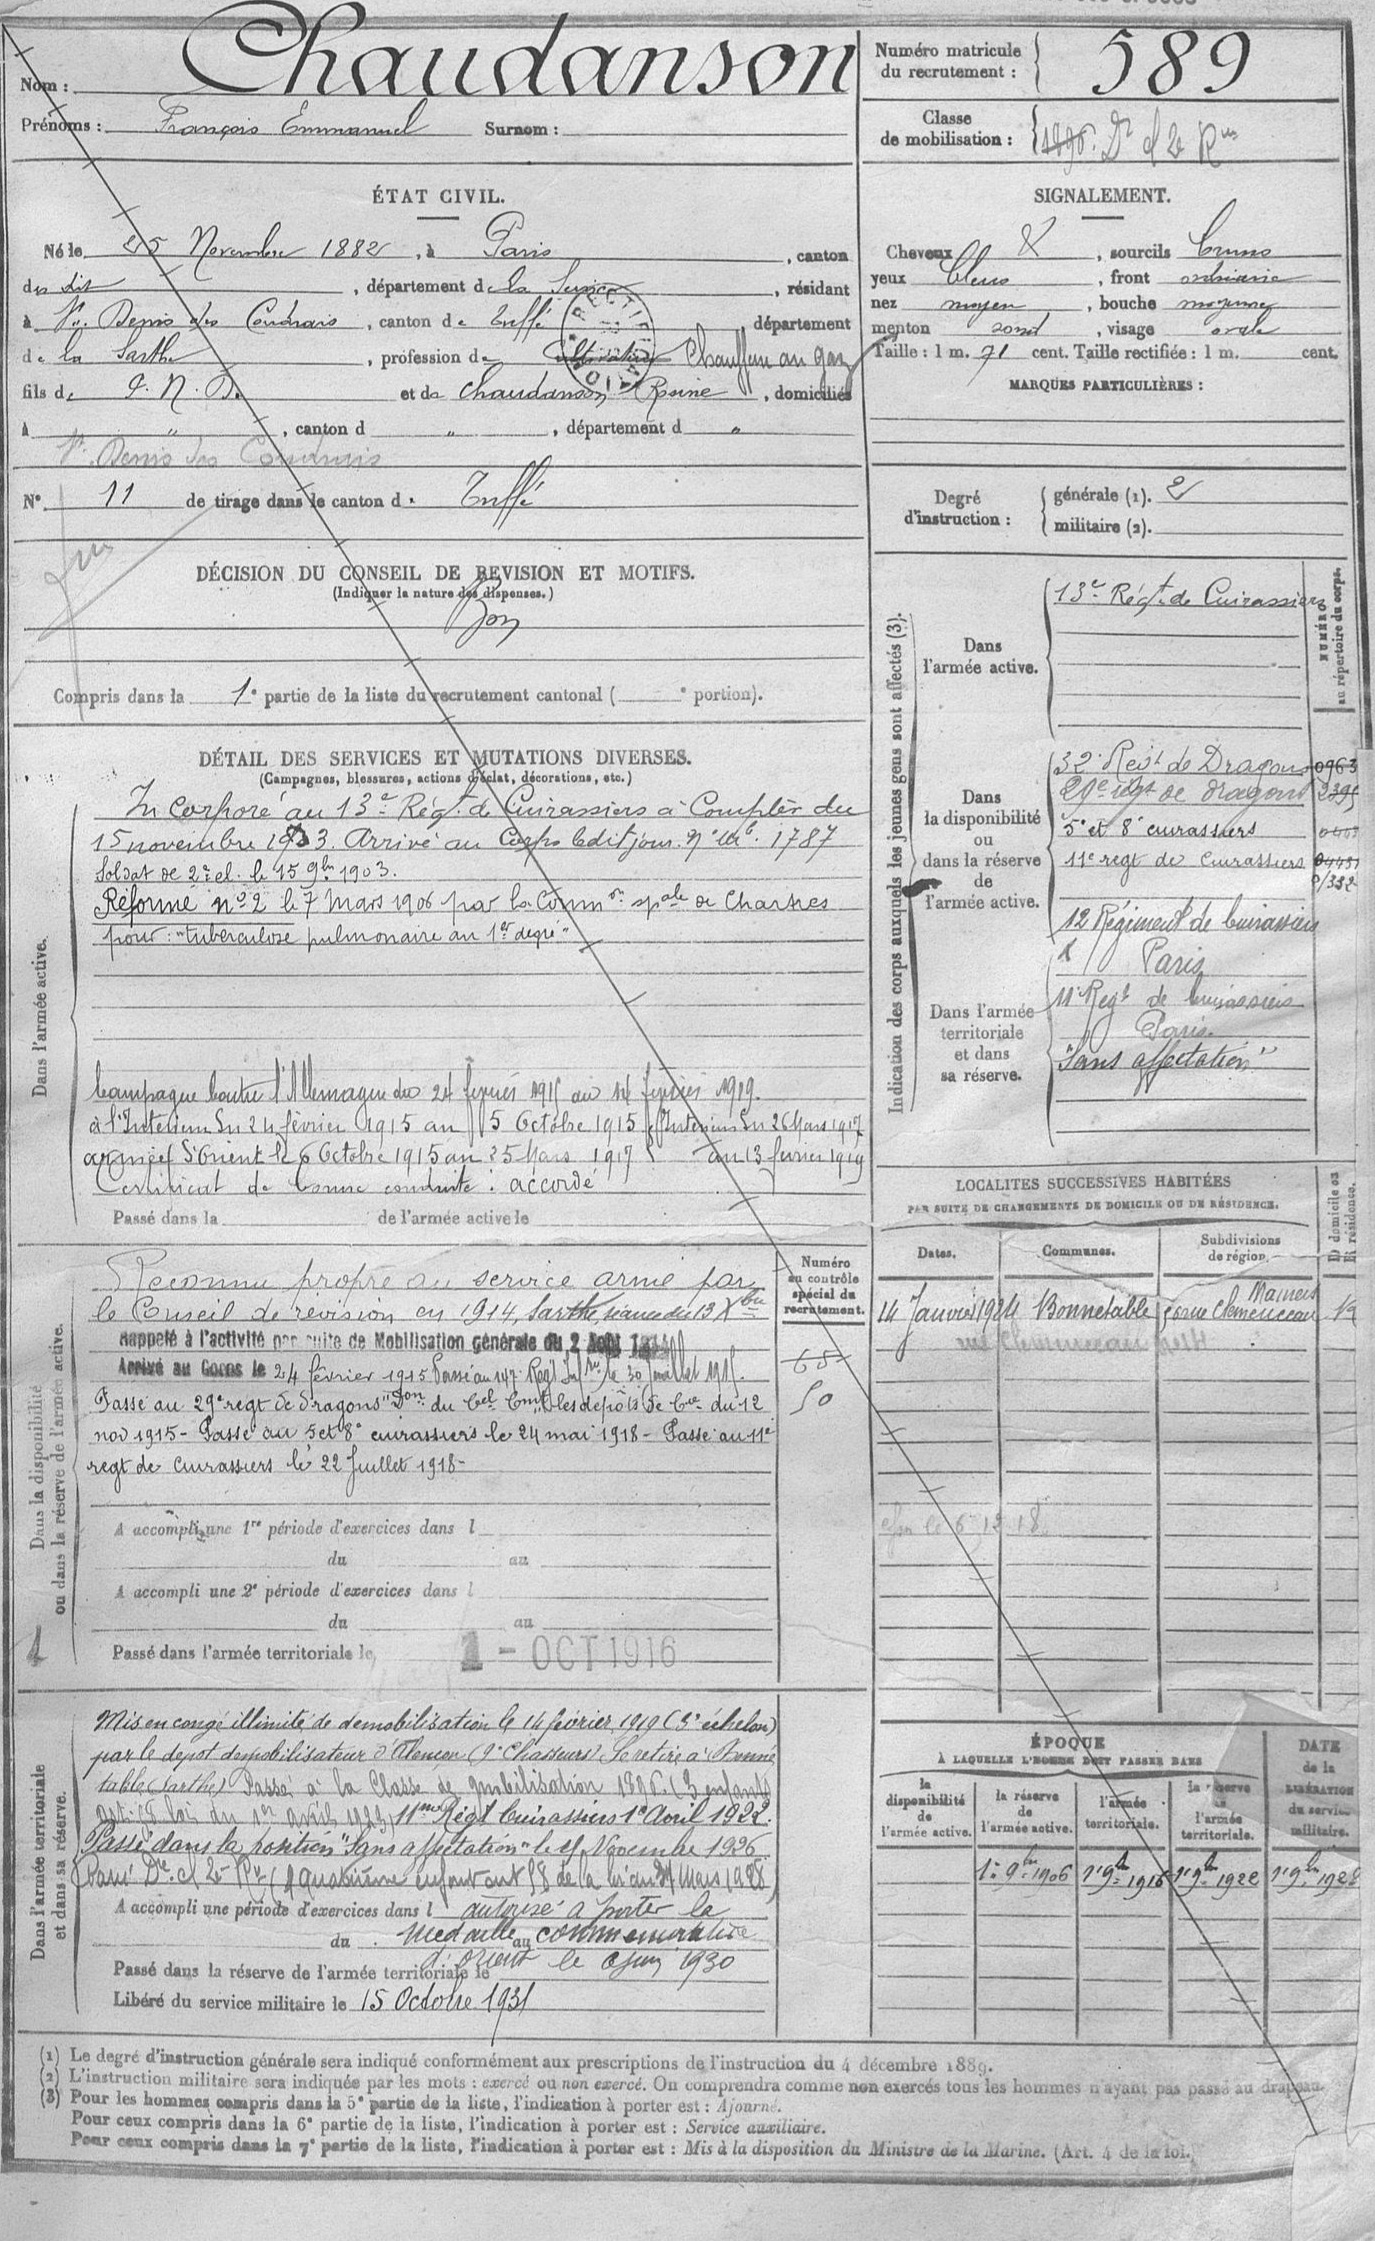 Nom : Chaudanson
Prénoms : François Emmanuel Surnom :
Numéro matricule du recrutement : 589
Classe de mobilisation : 1896. Dr cl 2e Rve
ÉTAT CIVIL.
Né le 25 Novembre 1882, à Paris, canton
des dit, département de la Seine, résidant
à St. Denis des Coudrais, canton de Tuffé département
de la Sarthe, profession de Cultivateur Chauffeur au gaz
fils de P. N. D. et de Chaudanson Rosine, domiciliés
à " , canton d " , département d "
St. Denis des Coudrais
N° 11 de tirage dans le canton de Tuffé
SIGNALEMENT.
Cheveux &, sourcils bruns
yeux bleus, front ordinaire
nez moyen, bouche moyenne
menton rond, visage ovale
Taille : 1 m. 71 cent. Taille rectifiée : 1 m. cent.
MARQUES PARTICULIÈRES :
Degré d'instruction : générale (1). 2
militaire (2).
DÉCISION DU CONSEIL DE REVISION ET MOTIFS.
(Indiquer la nature des dispenses.)
Bon
Compris dans la 1e partie de la liste du recrutement cantonal ( e portion).
DÉTAIL DES SERVICES ET MUTATIONS DIVERSES.
(Campagnes, blessures, actions d'éclat, décorations, etc.)
Dans l'armée active.
Incorporé au 13e Régt. de Cuirassiers à Compter du
15 novembre 1903. Arrivé au Corps ledit jour. n° mle. 1787
Soldat de 2e cl. le 15 9bre 1903.
Réformé n° 2 le 7 Mars 1906 par la Common spale de Chartres
pour : "tuberculose pulmonaire au 1er degré"
Campagne contre l'Allemagne du 24 février 1915 au 14 février 1919.
à l'Intérieur du 24 février 1915 au 5 Octobre 1915 Intérieur du 26 Mars 1917
armée d'Orient le 6 Octobre 1915 au 25 Mars 1917 au 13 février 1919
Certificat de bonne conduite : accordé
Passé dans la de l'armée active le
Indication des corps auxquels les jeunes gens sont affectés (3).
NUMÉRO au répertoire du corps.
Dans l'armée active.
13e Régt. de Cuirassiers
Dans la disponibilité ou dans la réserve de l'armée active.
32e Régt de Dragons 0963
29e régt de dragons 2395
5e et 8e cuirassiers
11e regt de cuirassiers
12 Régiment de Cuirassiers
Paris
Dans l'armée territoriale et dans sa réserve.
11e Regt de Cuirassiers
Paris.
"Sans affectation"
LOCALITES SUCCESSIVES HABITÉES
PAR SUITE DE CHANGEMENTS DE DOMICILE OU DE RÉSIDENCE.
Dates. Communes. Subdivisions de région. D domicile ou R résidence.
14 Janvier 1924 Bonnetable rue Clemenceau Mamers R
rue Clemenceau
6 12 18
Dans la disponibilité ou dans la réserve de l'armée active.
Numéro au contrôle spécial du recrutement.
50
Reconnu propre au service armé par
le Conseil de révision en 1914, Sarthe, séance du 13 Xbre
Rappelé à l'activité par suite de Mobilisation générale du 2 Août 1914
Arrivé au Corps le 24 février 1915 Passé au 147e Regt Infrie le 30 Juillet 1915.
Passé au 29e regt de dragons "Don du Cel Cmt les dépôts de Cie" du 12
nov 1915 - Passé au 5 et 8e cuirassiers le 24 mai 1918 - Passé au 11e
regt de cuirassiers le 22 Juillet 1918 -
A accompli une 1re période d'exercices dans l
du au
A accompli une 2e période d'exercices dans l
du au
Passé dans l'armée territoriale le 1 - OCT 1916
Dans l'armée territoriale et dans sa réserve.
Mis en congé illimité de démobilisation le 14 février 1919 (3e échelon)
par le dépôt démobilisateur d'Alençon (2e Chasseurs). Se retire à Bonné
table (Sarthe) Passé à la Classe de mobilisation 1896. (3 enfants
art. 58 loi du 1er avril 1923) 11me Régt Cuirassiers 1e Avril 1922.
Passé dans la position "Sans affectation" le Novembre 1926
Passé Dre cl 2e Rve (quatrième enfant art 58 de la loi du 31 Mars 1928)
A accompli une période d'exercices dans l autorisé à porter la
du médaille au commémorative
Passé dans la réserve de l'armée territoriale le d'Orient le 1930
Libéré du service militaire le 15 Octobre 1931
ÉPOQUE
À LAQUELLE L'HOMME DOIT PASSER DANS
la disponibilité de l'armée active. la réserve de l'armée active. l'armée territoriale. la réserve de l'armée territoriale. DATE de la LIBÉRATION du service militaire.
1er 9bre 1906 1er 9bre 1916 1er 9bre 1922 1er 9bre 1928
(1) Le degré d'instruction générale sera indiqué conformément aux prescriptions de l'instruction du 4 décembre 1889.
(2) L'instruction militaire sera indiquée par les mots : exercé ou non exercé. On comprendra comme non exercés tous les hommes n'ayant pas passé au drapeau.
(3) Pour les hommes compris dans la 5e partie de la liste, l'indication à porter est : Ajourné.
Pour ceux compris dans la 6e partie de la liste, l'indication à porter est : Service auxiliaire.
Pour ceux compris dans la 7e partie de la liste, l'indication à porter est : Mis à la disposition du Ministre de la Marine. (Art. 4 de la loi.)